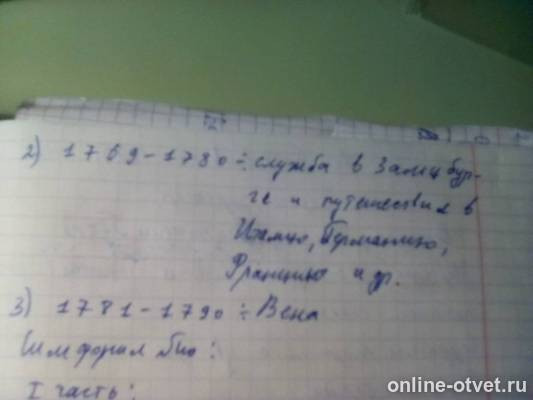 2) 1769-1780 ÷ служба в Зальцбур-
ге и путешествия в
Италию, Германию,
Францию и др.
3) 1781-1790 ÷ Вена
Симфония
I часть:
online-otvet.ru